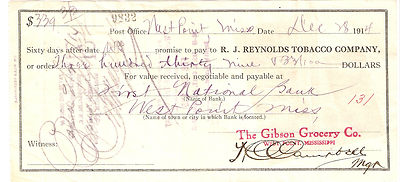 $339 3/8
9832
Post Office, West Point, Miss, Date Dec 28 1914
Sixty days after date We promise to pay to R. J. REYNOLDS TOBACCO COMPANY,
or order Three hundred thirty nine & 33/100 DOLLARS
For value received, negotiable and payable at
First National Bank
(Name of Bank.)
West Point Miss,
131
(Name of town or city in which Bank is located.)
Witness:
The Gibson Grocery Co.
WEST POINT, MISSISSIPPI
Campbell
Mgr